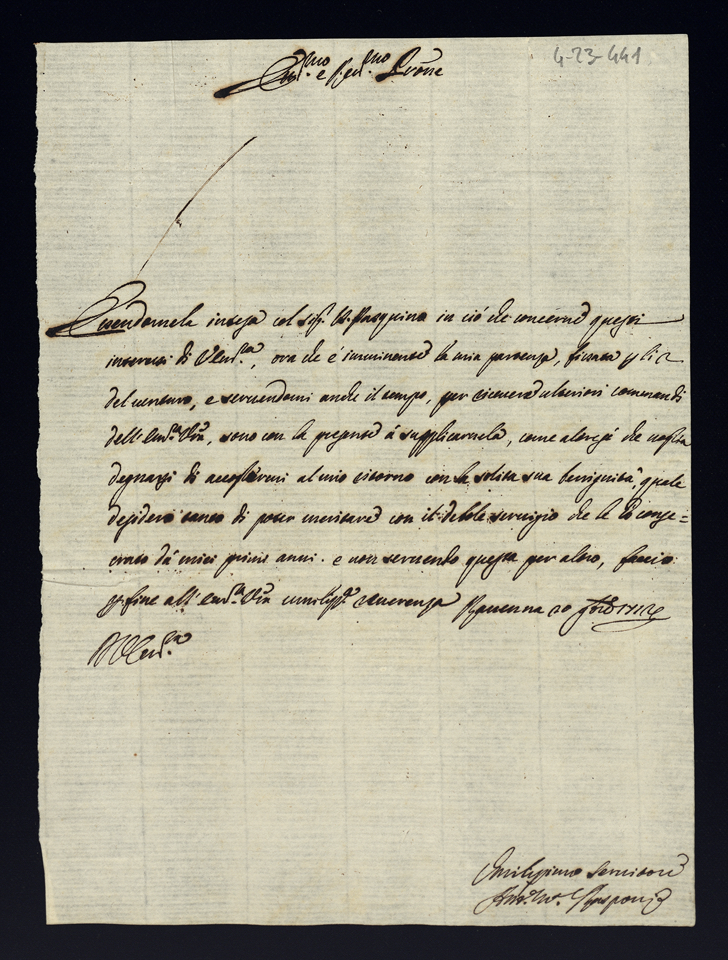 4-23-441
Em.mo e R.ed.mo P.rone
intesa col Sig.r Pasquino in ciò che concerne questi
interessi di V. Em.za, ora che è imminente la mia partenza, fissata
del venturo, e servendomi anche il tempo, per ricevere ulteriori comandi
dell' Em.za V.ra, sono con la presente à supplicarnela, come altresì che voglia
degnarsi di accogliermi al mio ritorno con la solita sua benignità, quale
desidero tanto di poter meritare con il debole servigio che le hò conse=
crato dà miei primi anni. e non servendo questa per altro, faccio
p. fine all' Em.za V.ra umiliss.a riverenza Ravenna 20
D V. Em.za
Umilissimo Servitore
Rasponi